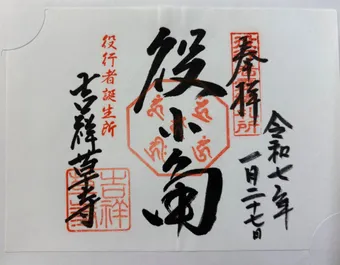 奉拝
令和七年
一月二十七日
役小角
役行者誕生所
吉祥草寺